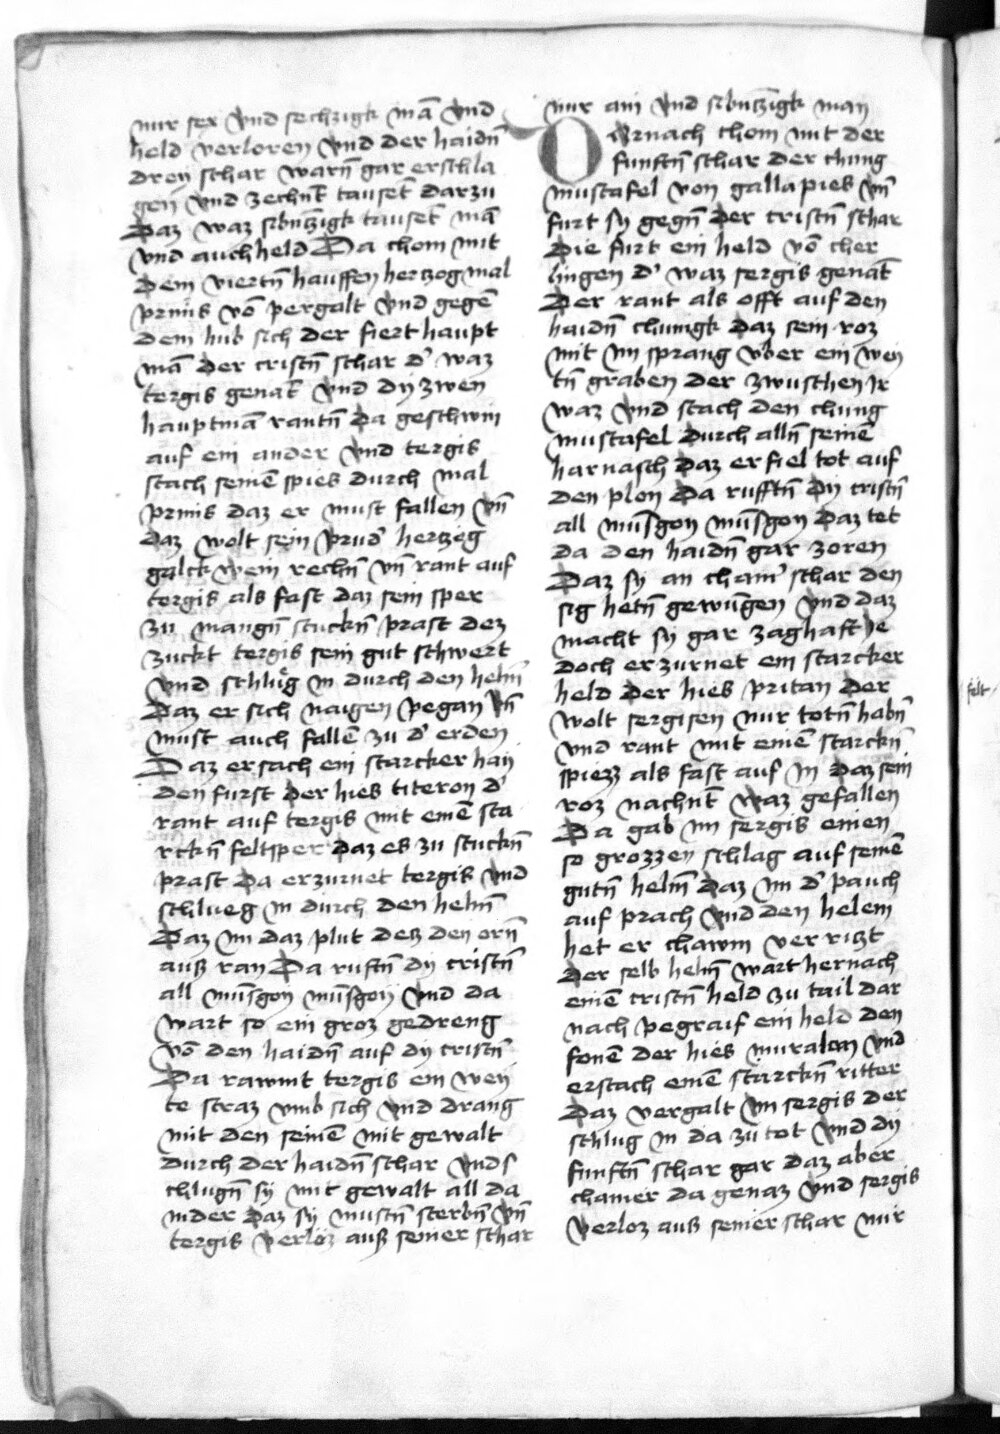 nur sex vnd sechzigk mā vnd
held verloren vnd der haidn̄
dreÿ schar warn̄ gar erschla
gen vnd zechnt̄ tauset̄ darzu
Daz waz sibn̄tzigk tauset̄ mā
vnd auch held Da chom mit
dem viertn̄ hauffen hertzog mal
prinis vō pergalt vnd gegē
dem hub sich der fiert haupt
mā der cristn̄ schar d' waz
tergis genāt vnd dy zwen
hauptmā rantn̄ da geschwin
auf ein ander vnd tergis
stach seinē spies durch mal
prinis daz er must fallen vn̄
daz wolt sein prud' hertzog
galckwein rechn̄ vn̄ rant auf
tergis als fast daz sein sper
zu mangn̄ stuckn̄ prast dez
zuckt tergis sein gut schwert
vnd schlůg in durch den helm̄
Daz er sich naigen pegan vn̄
must auch fallē zu d' erden
Daz ersach ein starcker hai
den furst der hies titeron d'
rant auf tergis mit einē sta
rckn̄ feltsper daz es zu stuckn̄
prast Da erzurnet tergis vnd
schlueg in durch den helm̄
Daz im daz plut desz den orn̄
ausz ran Da ruftn̄ dy cristn̄
all mūsgoy mūsgoy vnd da
wart so ein groz gedreng
vō den haidn̄ auf dy cristn̄
Da rawmt tergis ein wey
te straz vmb sich vnd drang
mit den seinē mit gewalt
durch der haidn̄ schar vnd s
chlugn̄ sy mit gewalt all da
nider daz sy mustn̄ sterbn̄ vn̄
tergis verloz ausz seiner schar
nur ain vnd sibn̄tzigk man
Darnach chom mit der
funftn̄ schar der chung
mustafel von galla pies vn̄
furt sy gegn̄ der cristn̄ schar
die furt ein held vō cher
lingen d' waz sergis genāt
Der rant als offt auf den
haidn̄ chunigk daz sein roz
mit im sprang vber ein wey
tn̄ graben der zwuschen ir
waz vnd stach den chung
mustafel durch alln̄ seinē
harnasch daz er fiel tot auf
den plon Da rufftn̄ dy cristn̄
all mūsgoy mūsgoy daz tet
da den haidn̄ gar zoren
Daz sy an cham' schar den
sig hetn̄ gewūgen vnd daz
macht sy gar zaghaft Je
doch erzurnet ein starcker
held der hies pritan der
wolt sergisen nur totn̄ habn̄
vnd rant mit einē starckn̄
spiezz als fast auf in daz sein
roz nachnt̄ waz gefallen
Da gab im sergis einen
so grozzen schlag auf seinē
gutn̄ helm̄ daz im d' pauch
auf prach vnd den helem
het er chawm verriszt
der selb helm̄ wart hernach
einē cristn̄ held zu tail dar
nach pegraif ein held den
fonē der hies muralan vnd
erstach einē starckn̄ ritter
Daz vergalt im sergis der
schlug in da zu tot vnd dy
funftn̄ schar gar daz aber
chainer da genaz vnd sergis
verloz ausz seiner schar nur
felt